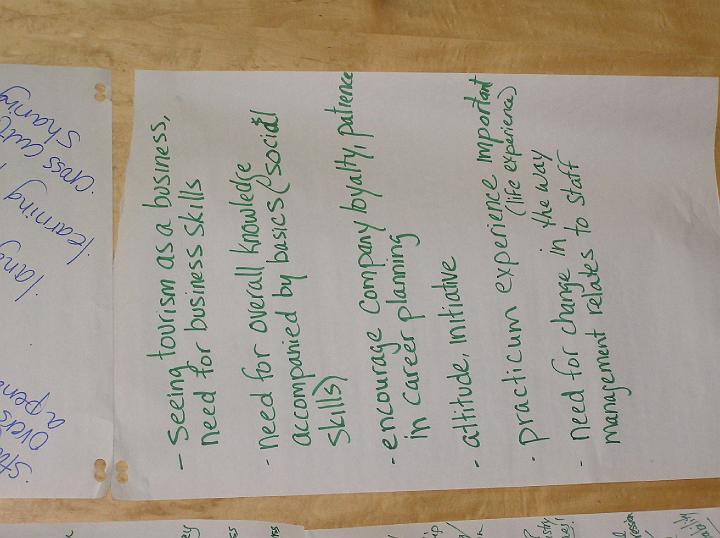 - seeing tourism as a business,
need for business skills
- need for overall knowledge
accompanied by basics (social
skills)
- encourage company loyalty, patience
in career planning
- attitude, initiative
- practicum experience important
(life experience)
- need for change in the way
management relates to staff
sharing
learning